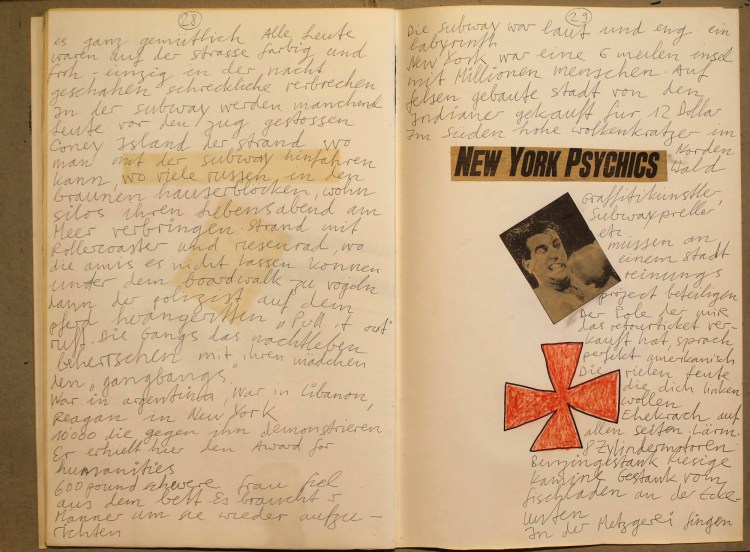 28
es ganz gemütlich Alle Leute
waren auf der strasse farbig und
froh - einzig in der nacht
geschahen schreckliche verbrechen
In der subway werden manchmal
Leute vor den zug gestossen
Coney Island der strand wo
man mit der subway hinfahren
kann, wo viele russen in den
braunen hauserblöcken, wohn
silos ihren Lebensabend am
Meer verbringen. strand mit
Rollercoaster und riesenrad, wo
die amis es nicht lassen können
unter dem boardwalk zu vögeln
dann der polizist auf dem
pferd herangeritten "Pull it out"
ruft. Die Gangs das nachtleben
beherrschen mit ihren mädchen
den "gangbangs"
War in argentina, War in Libanon,
Reagan in New York
10000 die gegen ihn demonstrieren
Er erhielt hier den Award for
humanities
600 pound schwere frau fiel
aus dem bett. Es braucht 5
Männer um sie wieder aufzu-
richten
29
Die subway war laut und eng ein
labyrinth
New York war eine 6 meilen insel
mit Millionen menschen. Auf
felsen gebaute stadt von den
Indianer gekauft für 12 Dollar
Im Süden hohe wolkenkratzer im
Norden
Wald
NEW YORK PSYCHICS
Graffitikünstler,
Subwaypreller
etc.
müssen an
einem stadt
reinungs
project beteiligen
Der Pole der mir
das retourticket ver-
kauft hat, sprach
perfekt amerikanisch
Die vielen Leute
die dich linken
wollen
Ehekrach auf
allen seiten. Lärm.
8 Zylindermotoren
Benzingestank Riesige
Kamine Gestank vom
fischladen an der Ecke
unten
In der Metzgerei fingen